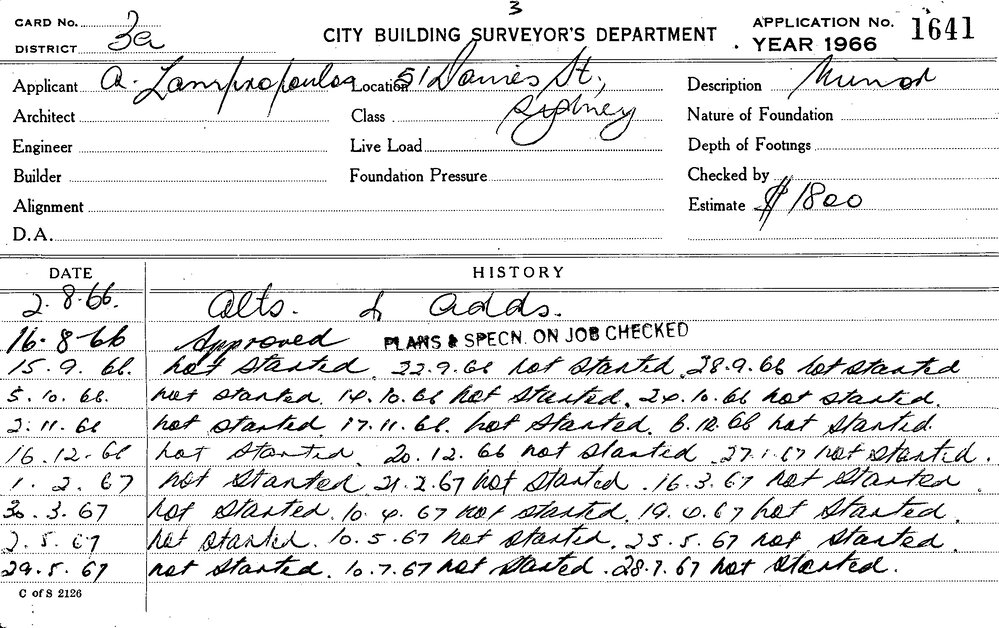 3
CARD No.
DISTRICT 3a
CITY BUILDING SURVEYOR'S DEPARTMENT
APPLICATION No. 1641
YEAR 1966
Applicant A. Lampropoulos Location 51 Davies St., Description Minor
Architect Class Sydney Nature of Foundation
Engineer Live Load Depth of Footings
Builder Foundation Pressure Checked by
Alignment Estimate $1800
D.A.
DATE HISTORY
2.8.66. Alts. & adds.
16.8.66 Approved PLANS & SPECN. ON JOB CHECKED
15.9.66. not started. 22.9.66 not started. 28.9.66 not started
5.10.66. not started. 14.10.66 not started. 24.10.66 not started.
2.11.66 not started 17.11.66. not started. 6.12.66 not started.
16.12.66 not started. 20.12.66 not started. 27.1.67 not started.
1.2.67 not started. 21.2.67 not started. 16.3.67 not started.
30.3.67 not started. 10.4.67 not started. 19.4.67 not started.
2.5.67 not started. 10.5.67 not started. 25.5.67 not started.
29.5.67 not started. 10.7.67 not started. 28.7.67 not started.
C of S 2126